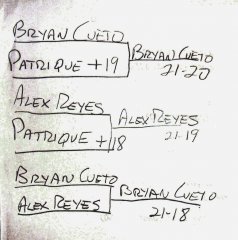 BRYAN CUETO
PATRIQUE +19
BRYAN CUETO
21-20
ALEX REYES
PATRIQUE +18
ALEX REYES
21-19
BRYAN CUETO
ALEX REYES
BRYAN CUETO
21-18